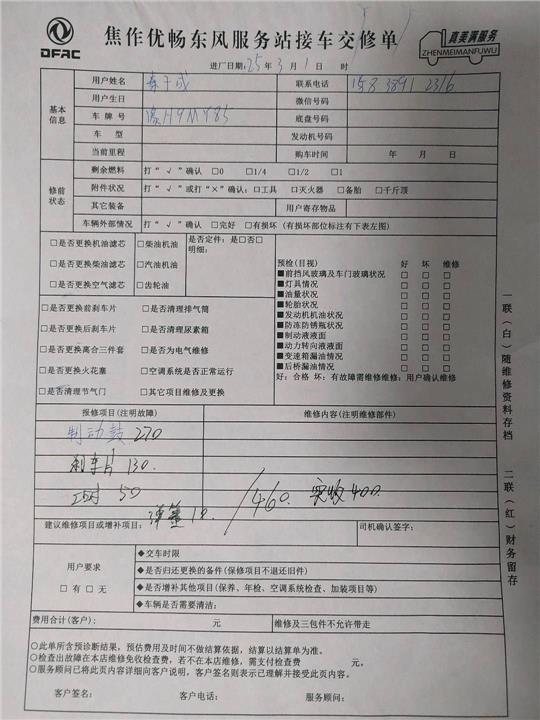 DFAC
焦作优畅东风服务站接车交修单
真美满服务
ZHENMEIMANFUWU
进厂日期:25年3月1日 时
基本信息
用户姓名 联系电话 158 3891 2316
用户生日 微信号码
车牌号 豫H9MY85 底盘号码
车型 发动机号码
当前里程 购车时间 年 月 日
修前状态
剩余燃料 打“√”确认 □0 □1/4 □1/2 □1
附件状况 打“√”或打“×”确认:□工具 □灭火器 □备胎 □千斤顶
其它装备 用户寄存物品
车辆外部情况 打“√”确认 □完好 □有损坏(有损坏部位标注有下表左图)
□是否更换机油滤芯 □柴油机油 是否定件:是□否□
明细:
□是否更换柴油滤芯 □汽油机油
□是否更换空气滤芯 □齿轮油
□是否更换前刹车片 □是否清理排气筒
□是否更换后刹车片 □是否清理尿素箱
□是否更换离合三件套 □是否为电气维修
□是否更换火花塞 □空调系统是否正常运行
□是否清理节气门 □其它项目维修及更换
预检(目视) 好 坏 维修
■前挡风玻璃及车门玻璃状况 □ □ □
■灯具情况 □ □ □
■油量状况 □ □ □
■轮胎状况 □ □ □
■发动机机油状况 □ □ □
■防冻防锈瓶状况 □ □ □
■制动液液面 □ □ □
■动力转向液液面 □ □ □
■变速箱漏油情况 □ □ □
■后桥漏油情况 □ □ □
好:合格 坏:有故障需维修维修:用户确认维修
报修项目(注明故障) 维修内容(注明维修部件)
制动鼓 270
刹车片 130.
工时 50
弹簧 10. /460. 实收400.
建议维修项目或增补项目: 司机确认签字:
用户要求
□有 □无
◆交车时限
◆是否归还更换的备件(保修项目不退还旧件)
◆是否增补其他项目(保养、年检、空调系统检查、加装项目等)
◆车辆是否需要清洁:
费用合计(客户): 元 维修及三包件不允许带走
○此单所含预诊断结果,预估费用及时间不做结算依据,结算以结算单为准。
○检查出故障在本店维修免收检查费,若不在本店维修,需支付检查费 元。
○服务顾问已将此页内容详细向客户说明,客户签名则表示已理解并接受此页内容。
客户签名: 客户电话: 服务顾问:
一联(白)随维修资料存档
二联(红)财务留存